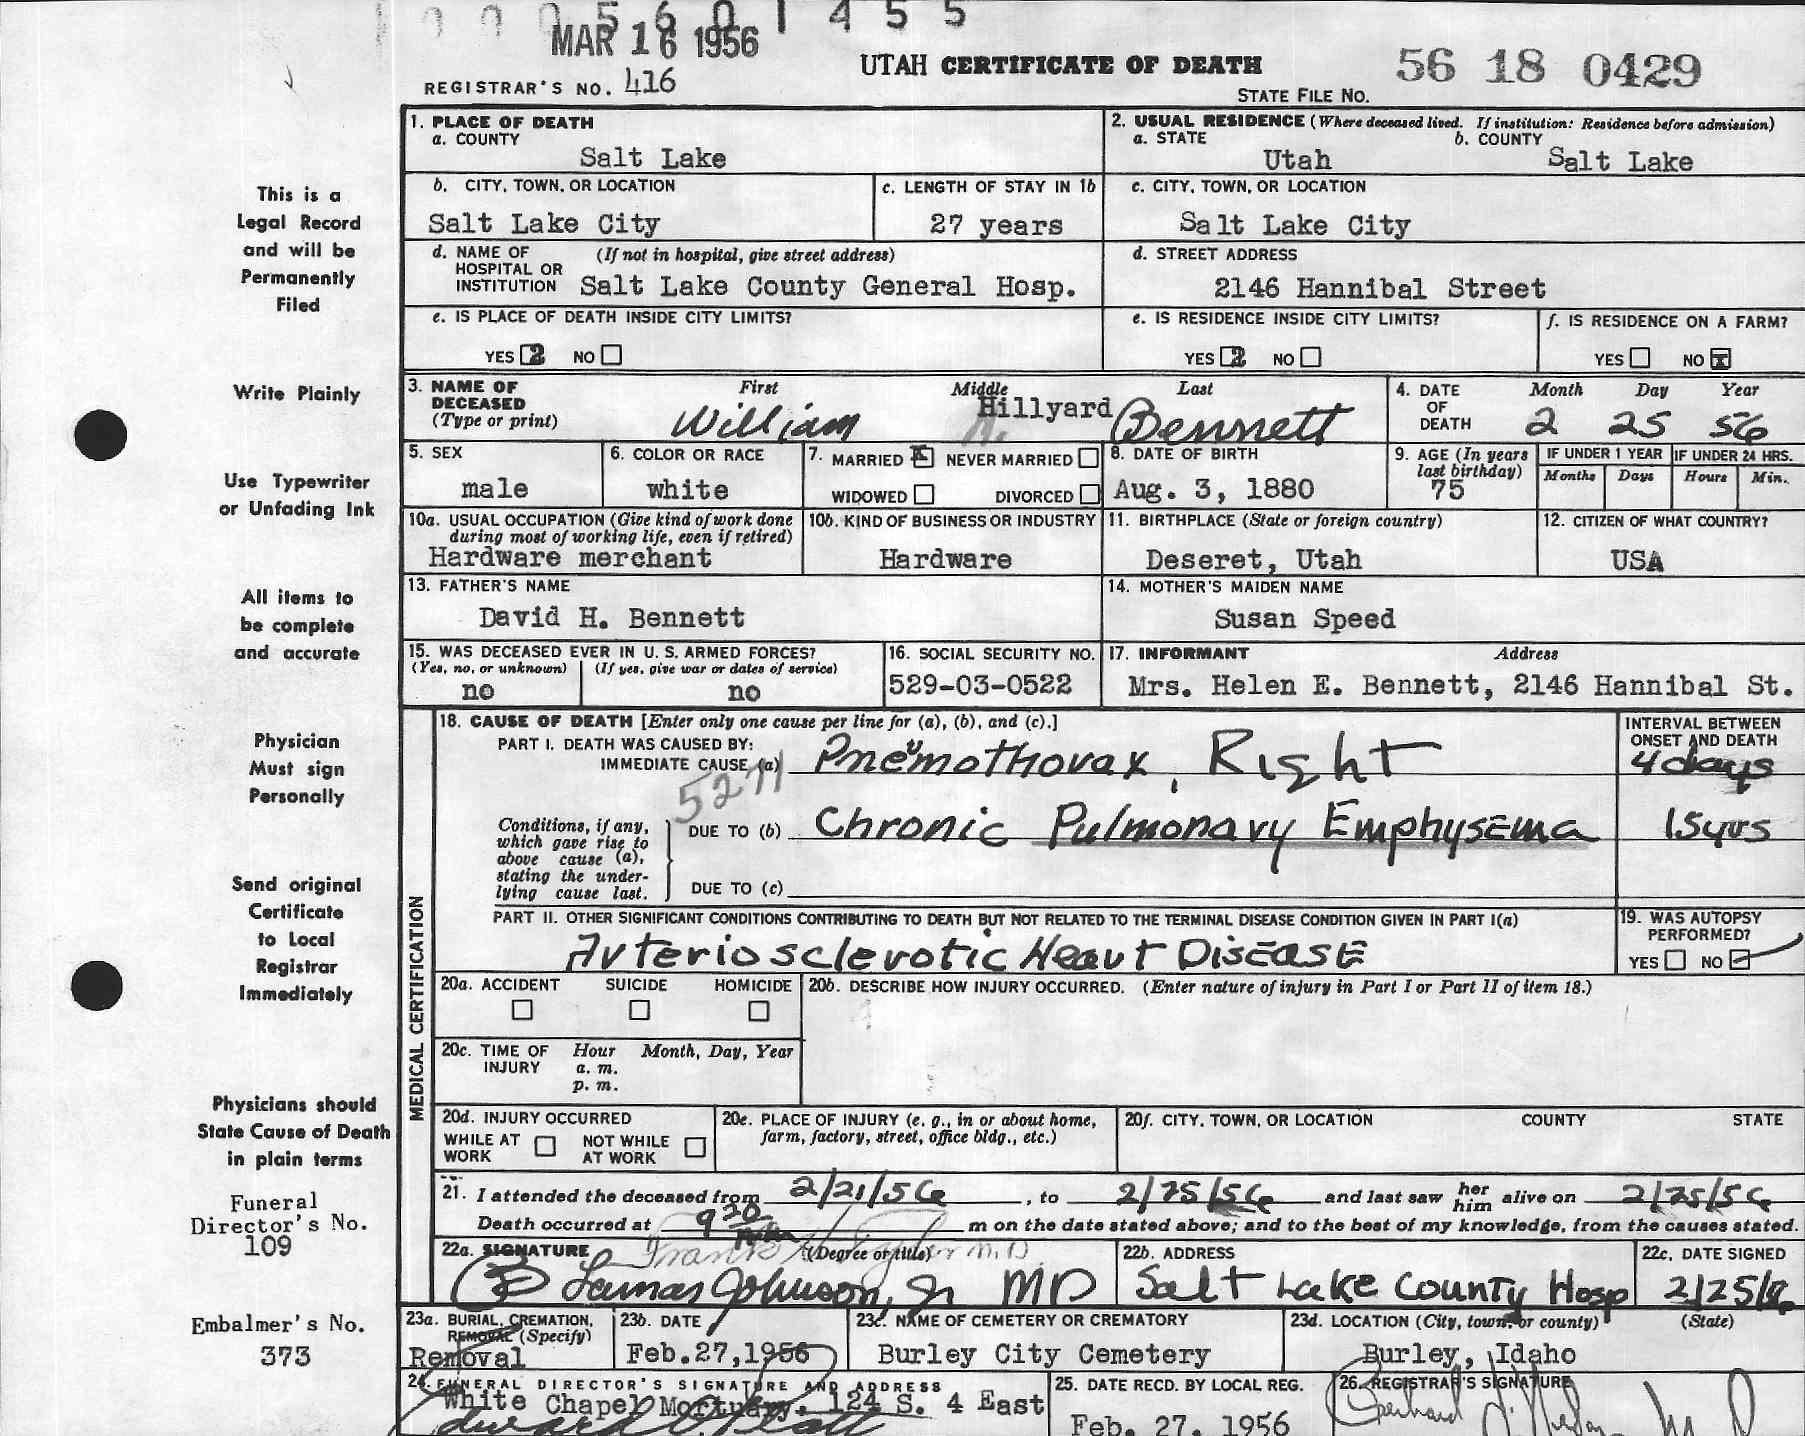 0005601455
MAR 16 1956
REGISTRAR'S NO. 416
UTAH CERTIFICATE OF DEATH
56 18 0429
STATE FILE NO.
This is a
Legal Record
and will be
Permanently
Filed
Write Plainly
Use Typewriter
or Unfading Ink
All items to
be complete
and accurate
Physician
Must sign
Personally
Send original
Certificate
to Local
Registrar
Immediately
Physicians should
State Cause of Death
in plain terms
Funeral
Director's No.
109
Embalmer's No.
373
1. PLACE OF DEATH
a. COUNTY
Salt Lake
2. USUAL RESIDENCE (Where deceased lived. If institution: Residence before admission)
a. STATE
Utah
b. COUNTY
Salt Lake
b. CITY, TOWN, OR LOCATION
Salt Lake City
c. LENGTH OF STAY IN 1b
27 years
c. CITY, TOWN, OR LOCATION
Salt Lake City
d. NAME OF HOSPITAL OR INSTITUTION (If not in hospital, give street address)
Salt Lake County General Hosp.
d. STREET ADDRESS
2146 Hannibal Street
e. IS PLACE OF DEATH INSIDE CITY LIMITS?
YES 2 NO
e. IS RESIDENCE INSIDE CITY LIMITS?
YES 2 NO
f. IS RESIDENCE ON A FARM?
YES NO x
3. NAME OF DECEASED (Type or print)
First Middle Last
William Hillyard Bennett
4. DATE OF DEATH
Month Day Year
2 25 56
5. SEX
male
6. COLOR OR RACE
white
7. MARRIED X NEVER MARRIED
WIDOWED DIVORCED
8. DATE OF BIRTH
Aug. 3, 1880
9. AGE (In years last birthday)
75
IF UNDER 1 YEAR
Months Days
IF UNDER 24 HRS.
Hours Min.
10a. USUAL OCCUPATION (Give kind of work done during most of working life, even if retired)
Hardware merchant
10b. KIND OF BUSINESS OR INDUSTRY
Hardware
11. BIRTHPLACE (State or foreign country)
Deseret, Utah
12. CITIZEN OF WHAT COUNTRY?
USA
13. FATHER'S NAME
David H. Bennett
14. MOTHER'S MAIDEN NAME
Susan Speed
15. WAS DECEASED EVER IN U. S. ARMED FORCES?
(Yes, no, or unknown) (If yes, give war or dates of service)
no no
16. SOCIAL SECURITY NO.
529-03-0522
17. INFORMANT Address
Mrs. Helen E. Bennett, 2146 Hannibal St.
MEDICAL CERTIFICATION
18. CAUSE OF DEATH [Enter only one cause per line for (a), (b), and (c).]
INTERVAL BETWEEN ONSET AND DEATH
PART I. DEATH WAS CAUSED BY:
IMMEDIATE CAUSE (a) Pneumothorax, Right 4 days
5271
Conditions, if any, which gave rise to above cause (a), stating the underlying cause last.
DUE TO (b) Chronic Pulmonary Emphysema 15 yrs
DUE TO (c)
PART II. OTHER SIGNIFICANT CONDITIONS CONTRIBUTING TO DEATH BUT NOT RELATED TO THE TERMINAL DISEASE CONDITION GIVEN IN PART I(a)
Arteriosclerotic Heart Disease
19. WAS AUTOPSY PERFORMED?
YES NO
20a. ACCIDENT SUICIDE HOMICIDE
20b. DESCRIBE HOW INJURY OCCURRED. (Enter nature of injury in Part I or Part II of item 18.)
20c. TIME OF INJURY Hour Month, Day, Year
a. m.
p. m.
20d. INJURY OCCURRED
WHILE AT WORK NOT WHILE AT WORK
20e. PLACE OF INJURY (e. g., in or about home, farm, factory, street, office bldg., etc.)
20f. CITY, TOWN, OR LOCATION COUNTY STATE
21. I attended the deceased from 2/21/56, to 2/25/56 and last saw her him alive on 2/25/56
Death occurred at 9 20 m on the date stated above; and to the best of my knowledge, from the causes stated.
22a. SIGNATURE (Degree or title)
Frank M.D.
Lamar Johnson, Jr MD
22b. ADDRESS
Salt Lake County Hosp
22c. DATE SIGNED
2/25/56
23a. BURIAL, CREMATION, REMOVAL (Specify)
Removal
23b. DATE
Feb.27,1956
23c. NAME OF CEMETERY OR CREMATORY
Burley City Cemetery
23d. LOCATION (City, town, or county) (State)
Burley, Idaho
24. FUNERAL DIRECTOR'S SIGNATURE AND ADDRESS
White Chapel Mortuary, 124 S. 4 East
25. DATE RECD. BY LOCAL REG.
Feb. 27, 1956
26. REGISTRAR'S SIGNATURE